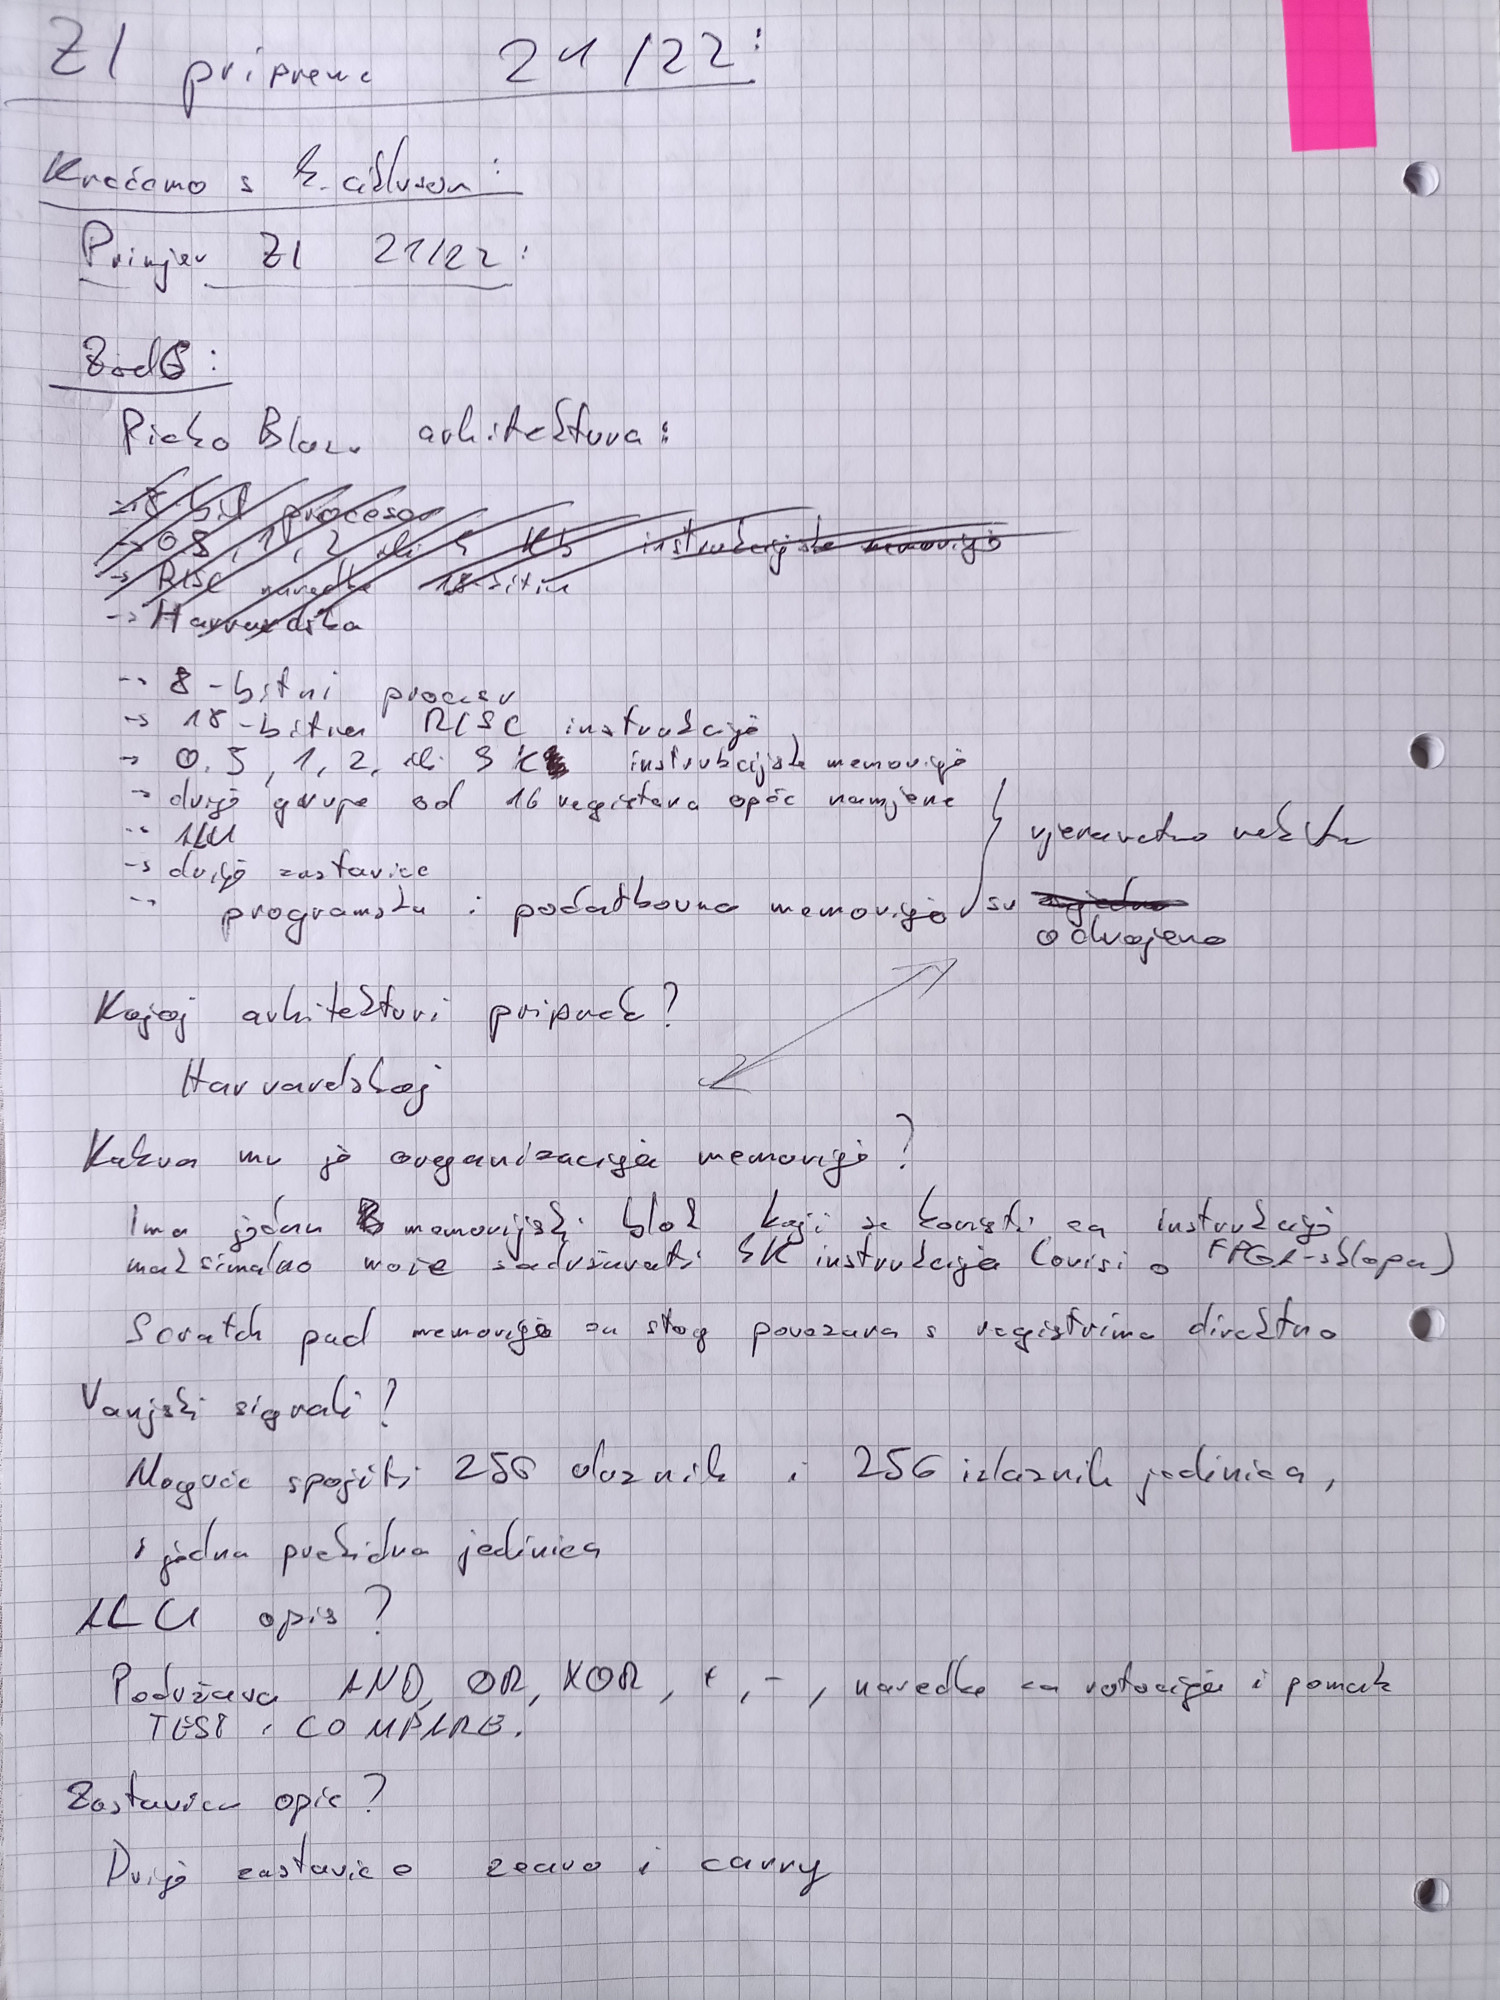 ZI priprema 21/22:
Krećemo s 2. ciklusom:
Primjer ZI 21/22:
Zad 6:
PicoBlaze arhitektura:
→ 8-bit procesor
→ 0.5, 1, 2 ili 4 Kb instrukcijske memorije
→ RISC naredbe 18-bitne
→ Harvardska
→ 8-bitni procesor
→ 18-bitne RISC instrukcije
→ 0.5, 1, 2, ili 4 K instrukcijske memorije
→ dvije grupe od 16 registara opće namjene
→ ALU
→ dvije zastavice
→ programska i podatkovna memorija su
vjerovatno nebitno
odvojene
Kojoj arhitekturi pripada?
Harvardskoj
Kakva mu je organizacija memorije?
Ima jedan memorijski blok koji se koristi za instrukcije
maksimalno može sadržavati 4K instrukcija (ovisi o FPGA-sklopu)
Scratch pad memorija za stog povezana s registrima direktno
Vanjski signali?
Moguće spojiti 256 ulaznih i 256 izlaznih jedinica,
i jedna prekidna jedinica
ALU opis?
Podržava AND, OR, XOR, +, -, naredbe za rotacije i pomak
TEST i COMPARE.
Zastavice opis?
Dvije zastavice zero i carry